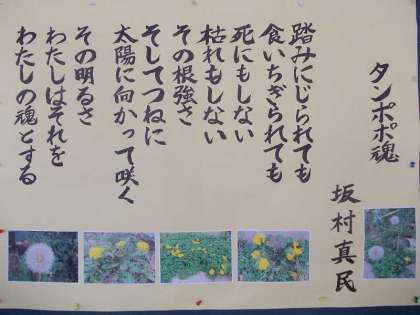 タンポポ魂
坂村真民
踏みにじられても
食いちぎられても
死にもしない
枯れもしない
その根強さ
そしてつねに
太陽に向かって咲く
その明るさ
わたしはそれを
わたしの魂とする